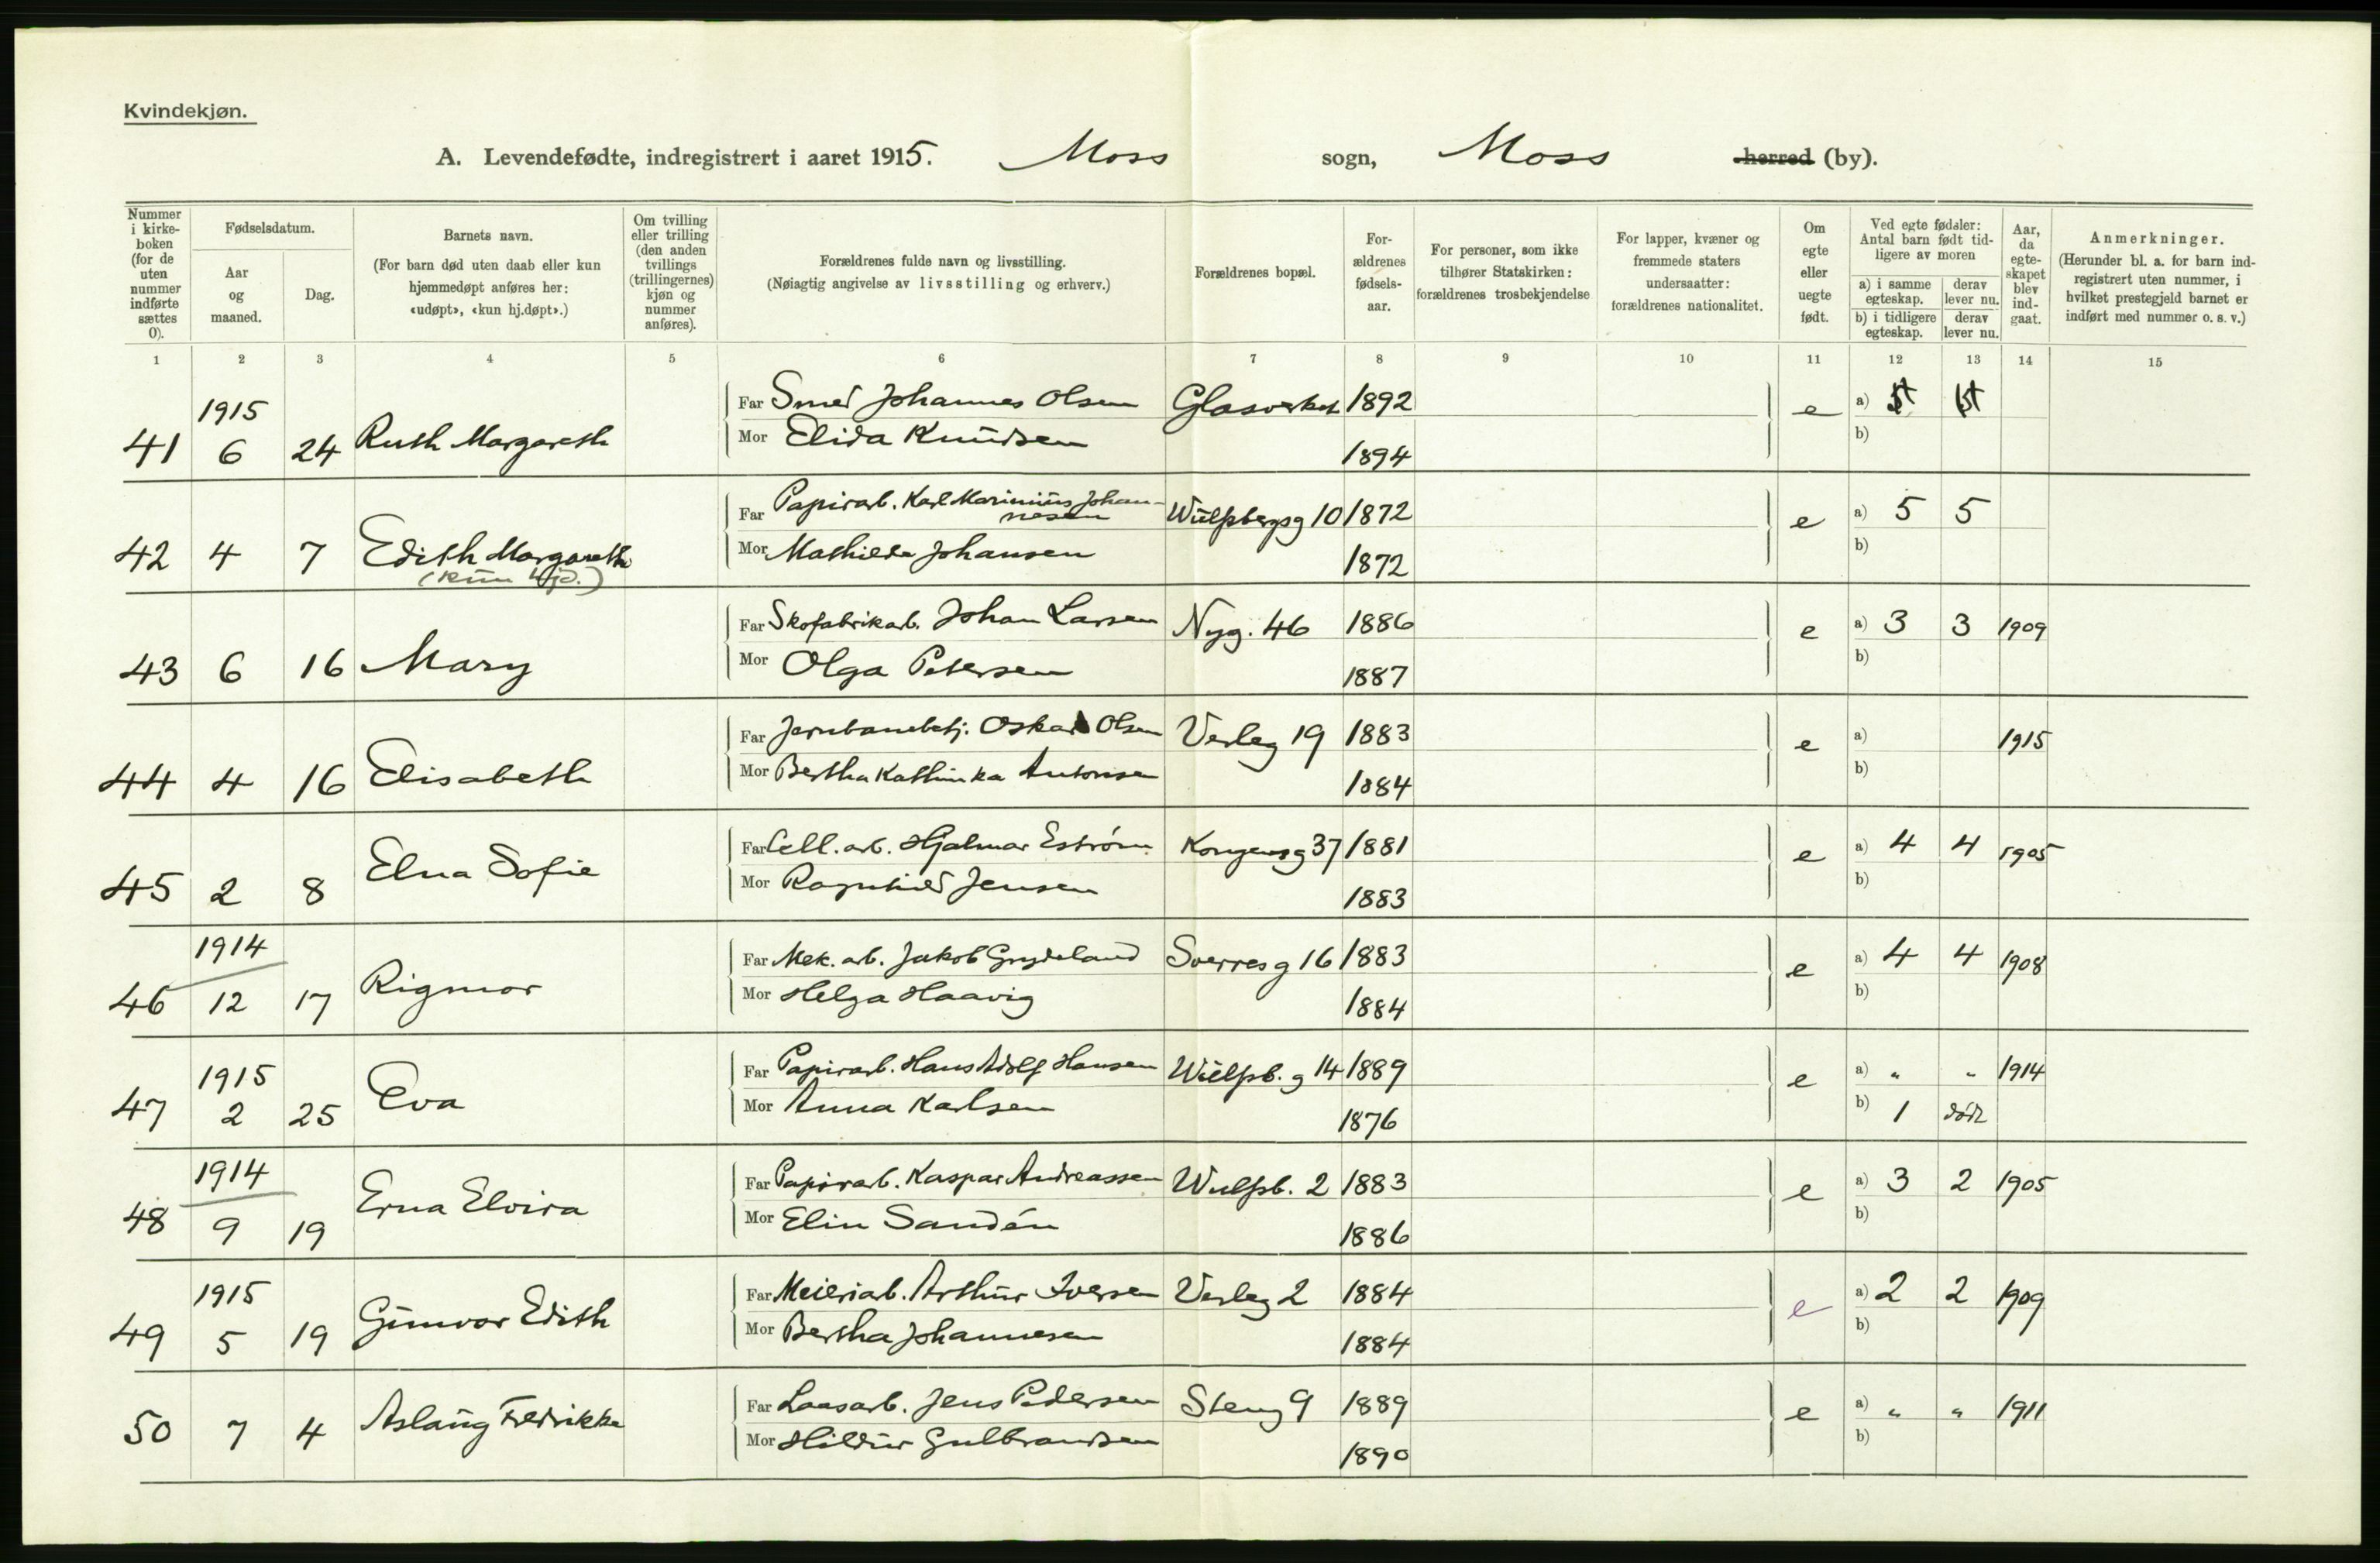 Kvindekjøn.
A. Levendefødte, indregistrert i aaret 1915. Moss sogn, Moss herred (by).
Nummer i kirke-boken (for de uten nummer indførte sættes 0).
Fødselsdatum.
Aar og maaned.
Dag.
Barnets navn.
(For barn død uten daab eller kun hjemmedøpt anføres her: «udøpt», «kun hj.døpt».)
Om tvilling eller trilling (den anden tvillings (trillingernes) kjøn og nummer anføres).
Forældrenes fulde navn og livsstilling.
(Nøiagtig angivelse av livsstilling og erhverv.)
Forældrenes bopæl.
For-ældrenes fødsels-aar.
For personer, som ikke tilhører Statskirken: forældrenes trosbekjendelse
For lapper, kvæner og fremmede staters undersaatter: forældrenes nationalitet.
Om egte eller uegte født.
Ved egte fødsler: Antal barn født tid-ligere av moren
a) i samme egteskap.
derav lever nu.
b) i tidligere egteskap.
derav lever nu.
Aar, da egte-skapet blev ind-gaat.
Anmerkninger.
(Herunder bl. a. for barn ind-registrert uten nummer, i hvilket prestegjeld barnet er indført med nummer o. s. v.)
1 2 3 4 5 6 7 8 9 10 11 12 13 14 15
1915
Far Smed Johannes Olsen Glasverket 1892 e a)
41 6 24 Ruth Margareth Mor Elida Knudsen 1894 b)
Far Papirarb. Karl Marinius Johan-
nesen Wulfsbergsg 10 1872 e a) 5 5
42 4 7 Edith Margareth Mor Mathilde Johansen 1872 b)
(kun hjd.)
Far Skofabrikarb. Johan Larsen Nyg. 46 1886 e a) 3 3 1909
43 6 16 Mary Mor Olga Petersen 1887 b)
Far Jernbanebetj. Oskar Olsen Verleg 19 1883 e a) 1915
44 4 16 Elisabeth Mor Bertha Kathinka Antonsen 1884 b)
Far Cell. arb. Hjalmar Estrøm Kongensg 37 1881 e a) 4 4 1905
45 2 8 Elna Sofie Mor Ragnhild Jensen 1883 b)
1914
Far Mek. arb. Jakob Grydeland Sverresg 16 1883 e a) 4 4 1908
46 12 17 Rigmor Mor Helga Haavig 1884 b)
1915
Far Papirarb. Hans Adolf Hansen Wülfsb. g 14 1889 e a) " " 1914
47 2 25 Eva Mor Anna Karlsen 1876 b) 1 død
1914
Far Papirarb. Kaspar Andreassen Wulfsb. 2 1883 e a) 3 2 1905
48 9 19 Erna Elvira Mor Elin Sandén 1886 b)
1915
Far Meieriarb. Arthur Iversen Verleg 2 1884 e a) 2 2 1909
49 5 19 Gunvor Edith Mor Bertha Johannesen 1884 b)
Far Laasarb. Jens Pedersen Steng 9 1889 e a) " " 1911
50 7 4 Aslaug Fredrikke Mor Hildur Gulbrandsen 1890 b)